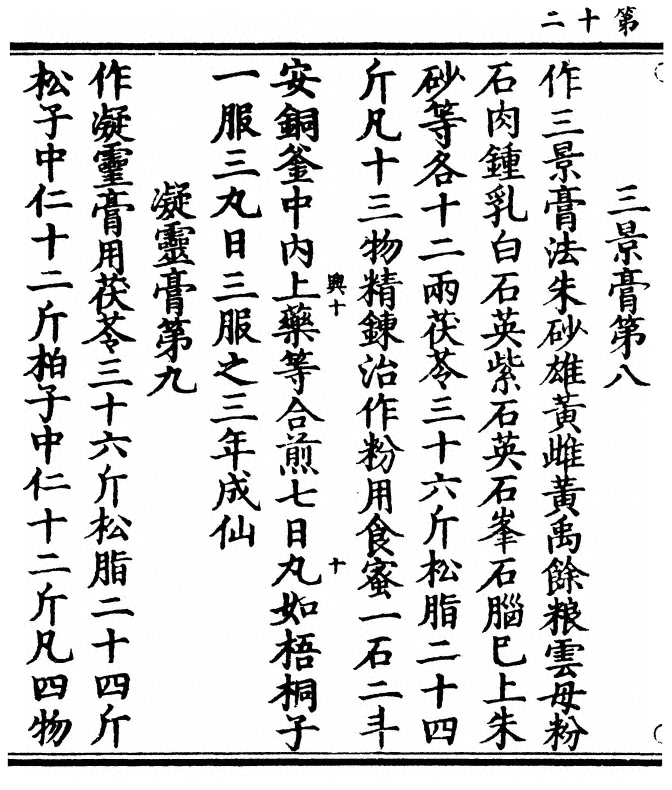 第十二
三景膏第八
作三景膏法朱砂雄黃雌黃禹餘粮雲母粉
石肉鍾乳白石英紫石英石峯石腦巳上朱
砂等各十二兩茯苓三十六斤松脂二十四
斤凡十三物精鍊治作粉用食蜜一石二斗
興十
十
安銅釜中內上藥等合煎七日丸如梧桐子
一服三丸日三服之三年成仙
凝靈膏第九
作凝靈膏用茯苓三十六斤松脂二十四斤
松子中仁十二斤柏子中仁十二斤凡四物